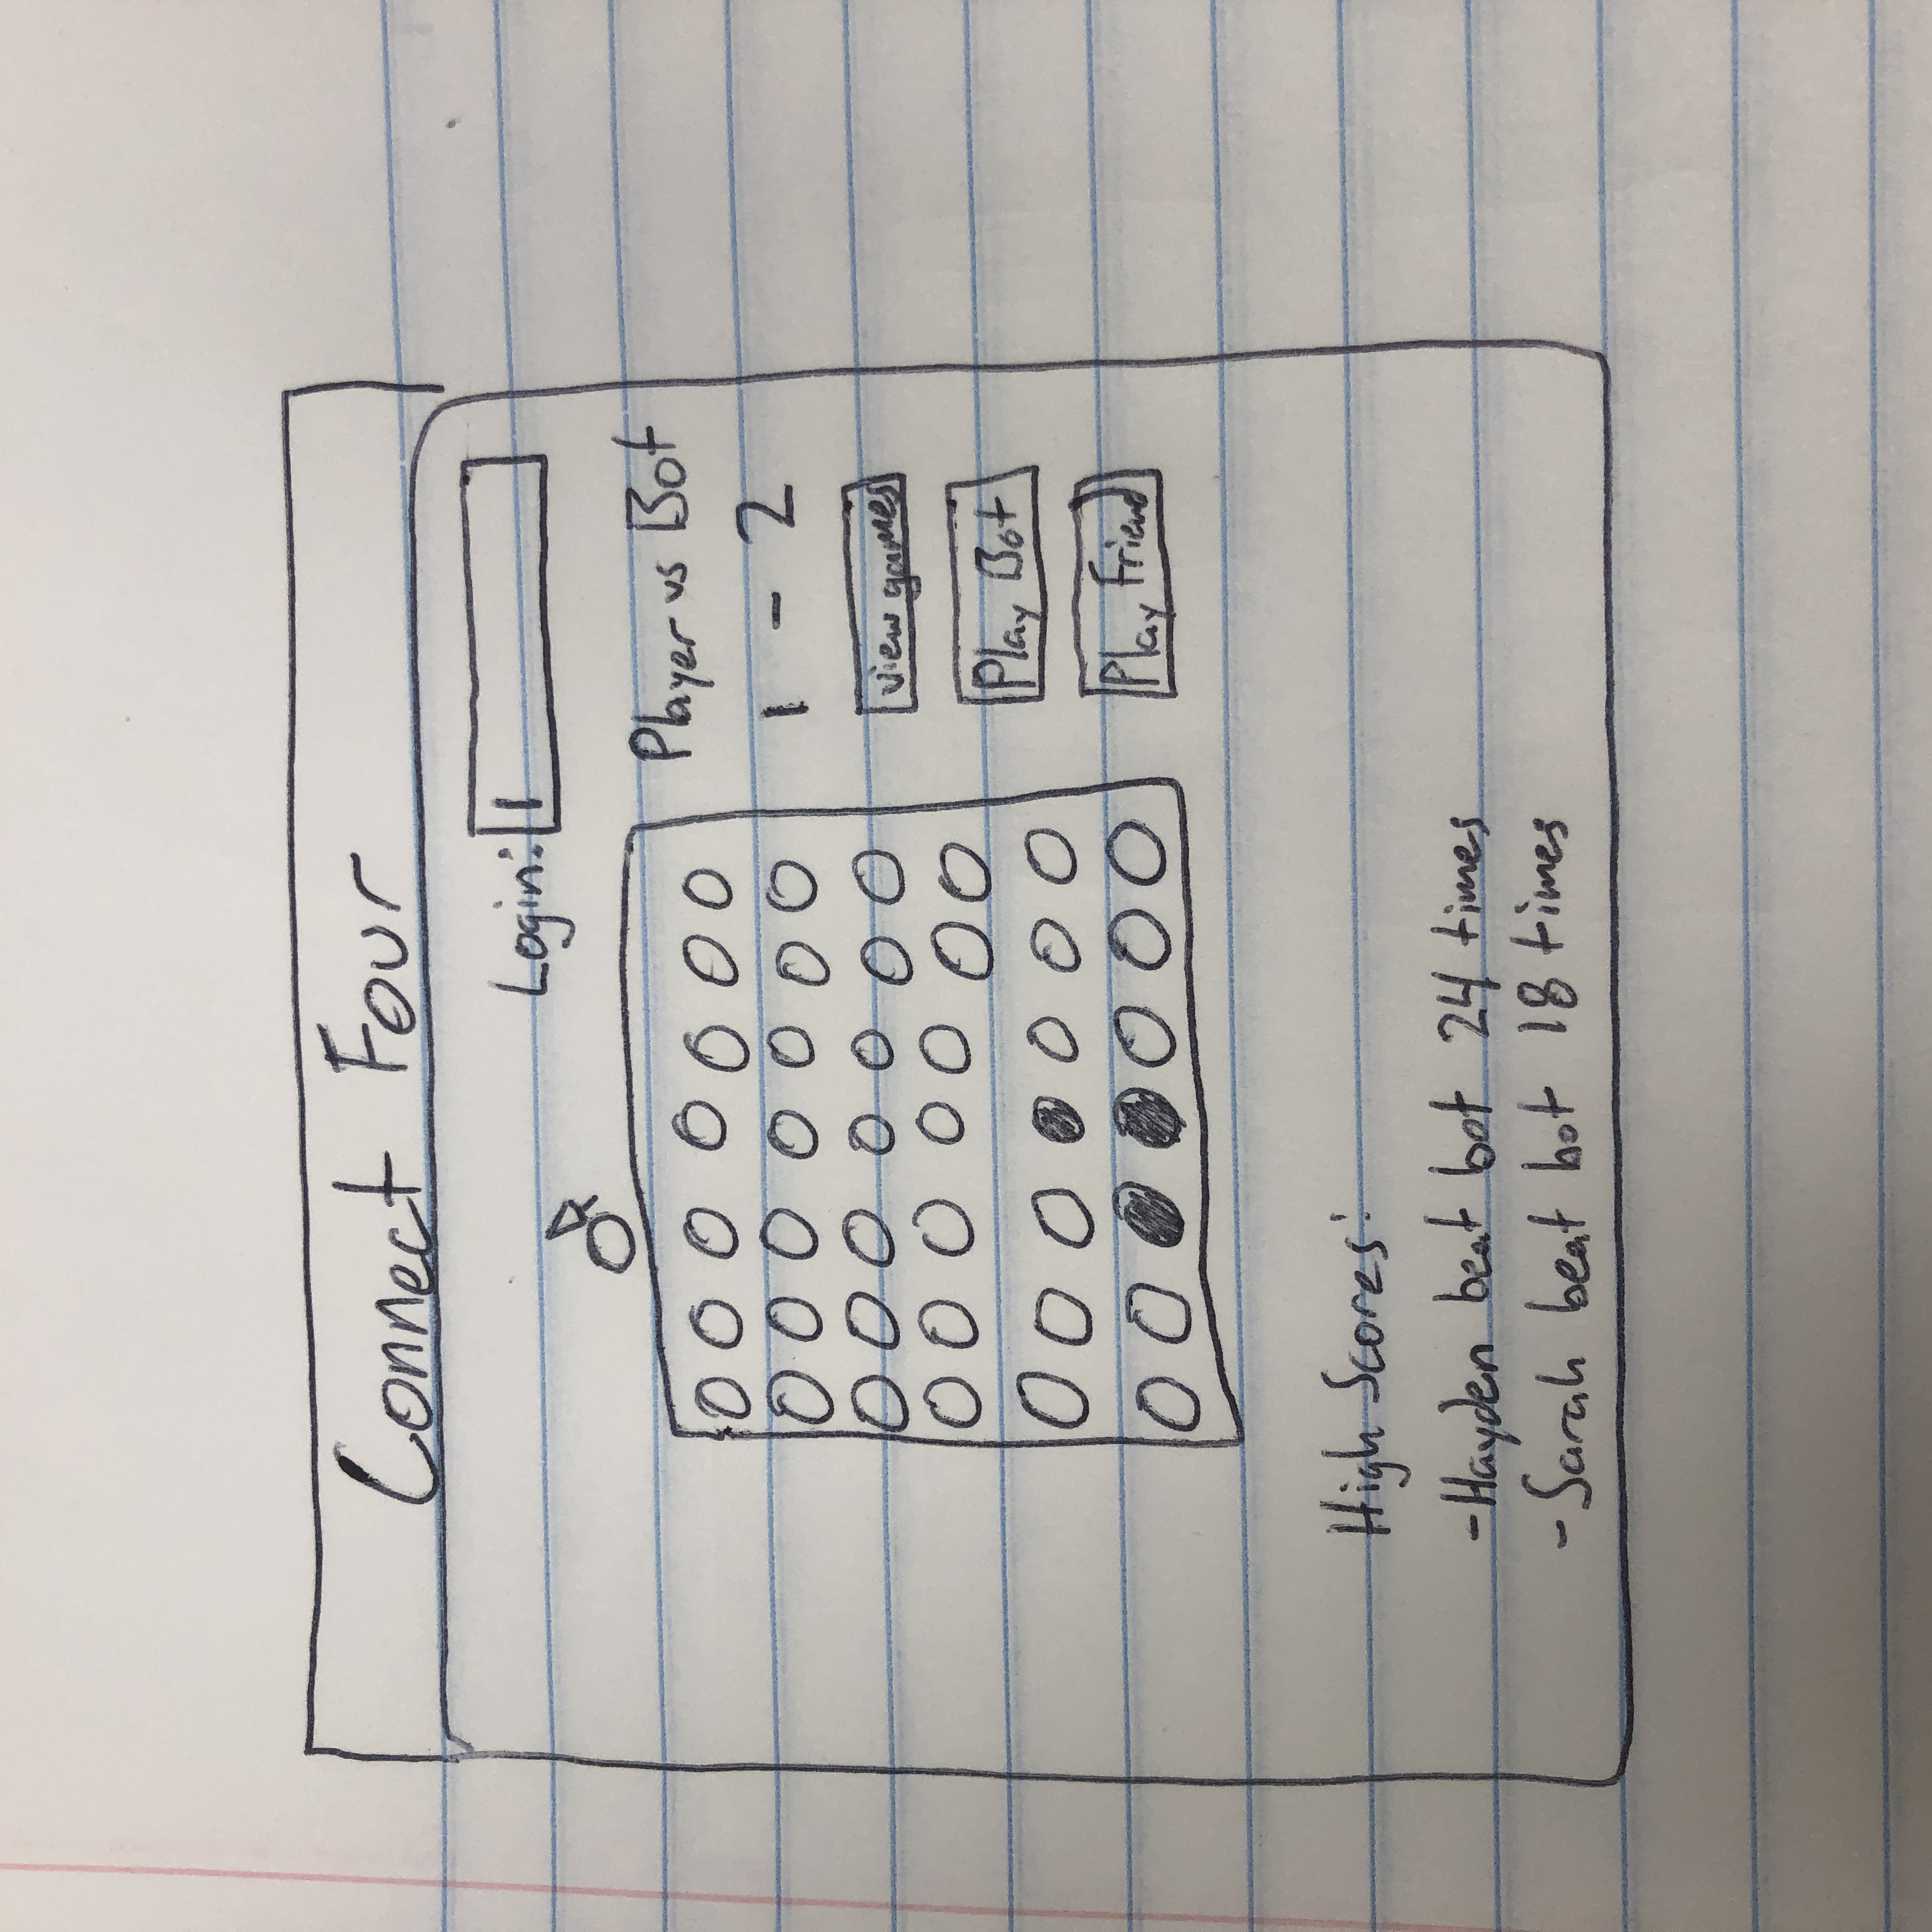 Connect Four
Login:
Player vs Bot
1 - 2
view games
Play Bot
Play Friend
High Scores:
-Hayden beat bot 24 times
-Sarah beat bot 18 times